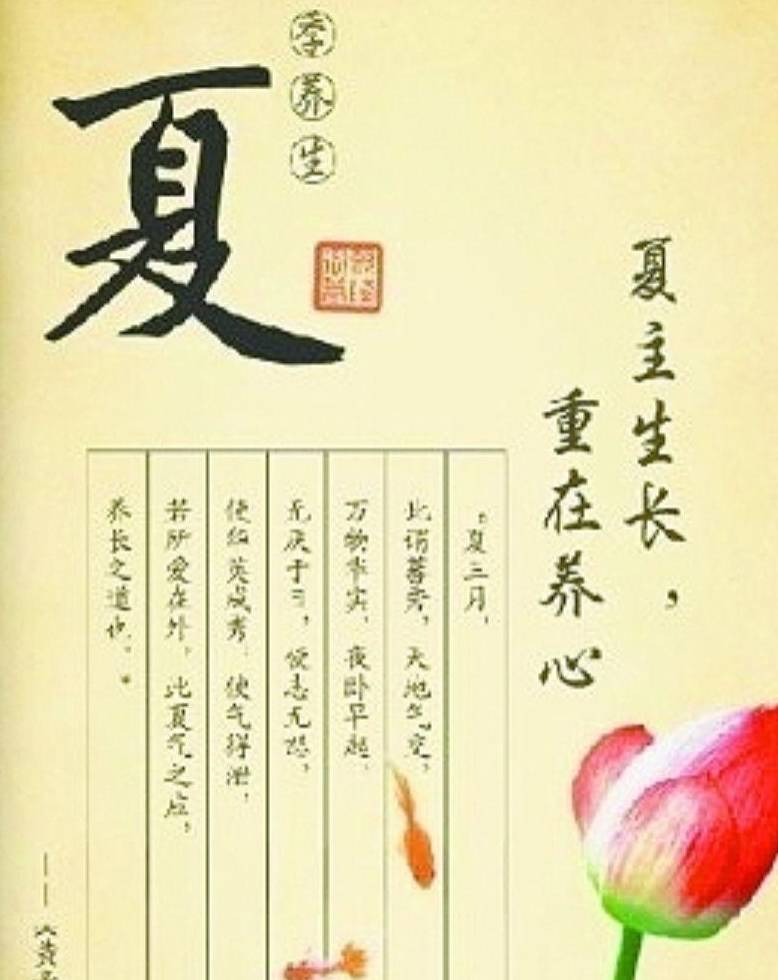 夏
季养生
夏主生长，
重在养心
“夏三月，
此谓蕃秀，天地气交，
万物华实，夜卧早起，
无厌于日，使志无怒，
使英成秀，使气得泄，
若所爱在外，此夏气之应，
养长之道也。”
——《黄